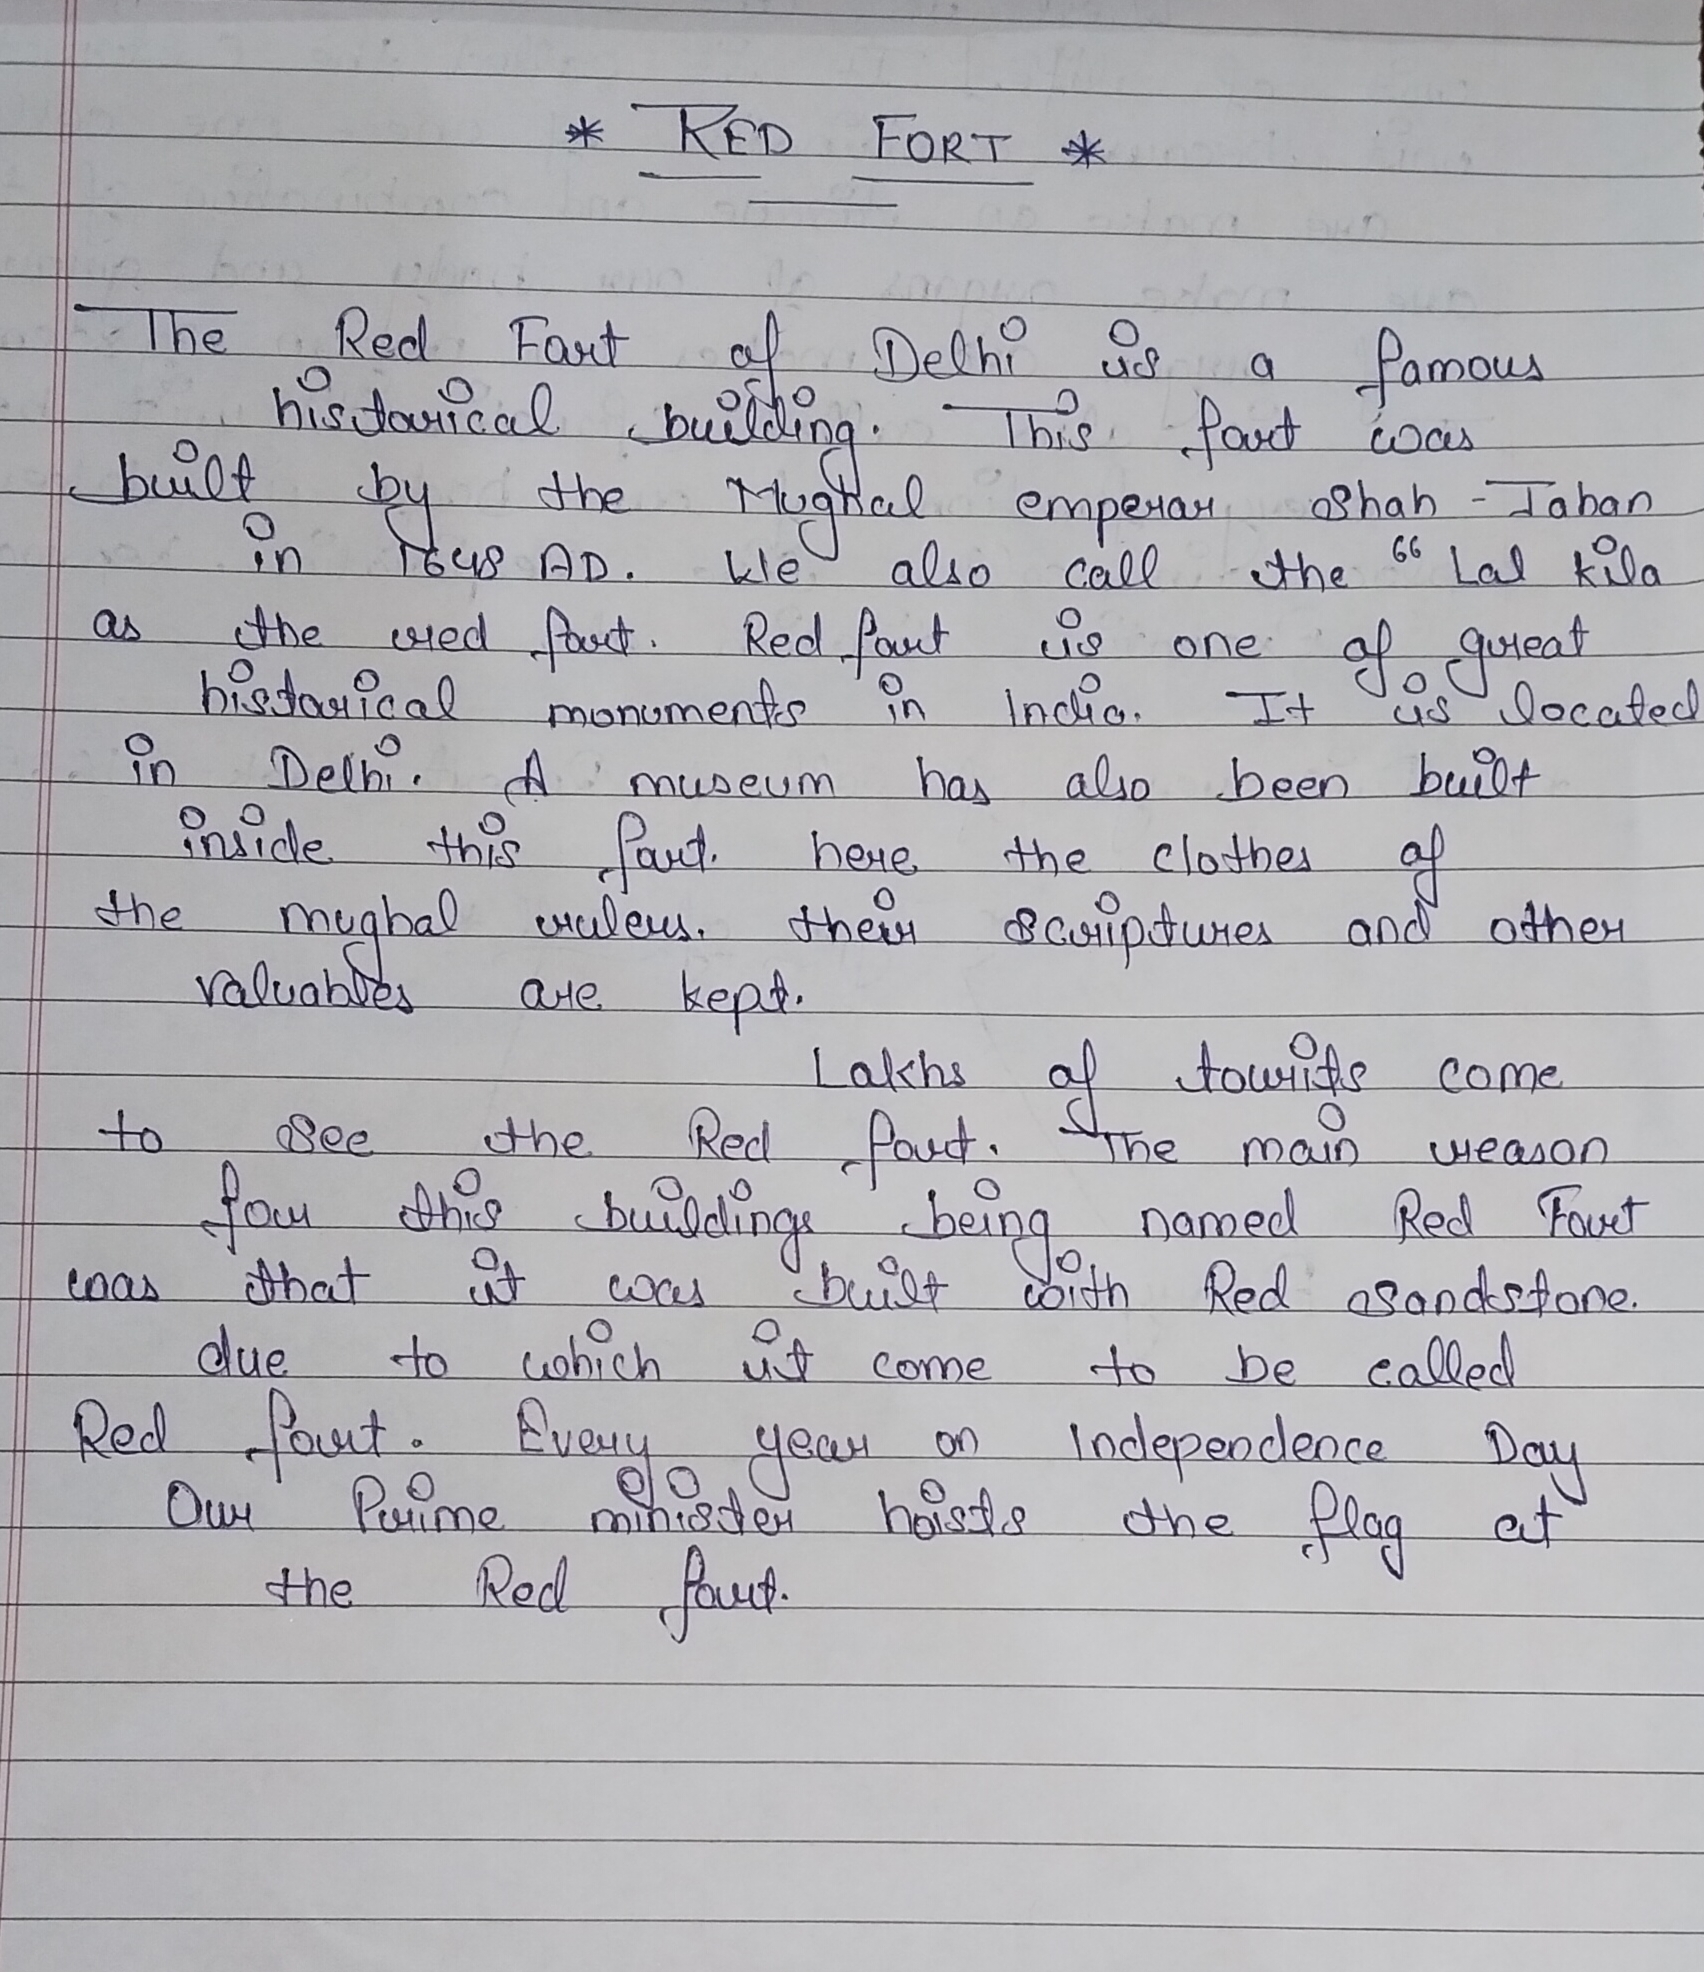 * RED FORT *
The Red Fort of Delhi is a famous
historical building. This fort was
built by the Mughal emperor Shah-Jahan
in 1648 AD. We also call the “ Lal kila
as the red fort. Red fort is one of great
historical monuments in India. It is located
in Delhi. A museum has also been built
inside this fort. here the clothes of
the mughal rulers. their scriptures and other
valuables are kept.
Lakhs of tourits come
to see the Red fort. The main reason
for this buildings being named Red Fort
was that it was built with Red sandstone.
due to which it come to be called
Red fort. Every year on Independence Day
Our Prime minister hoists the flag at
the Red fort.